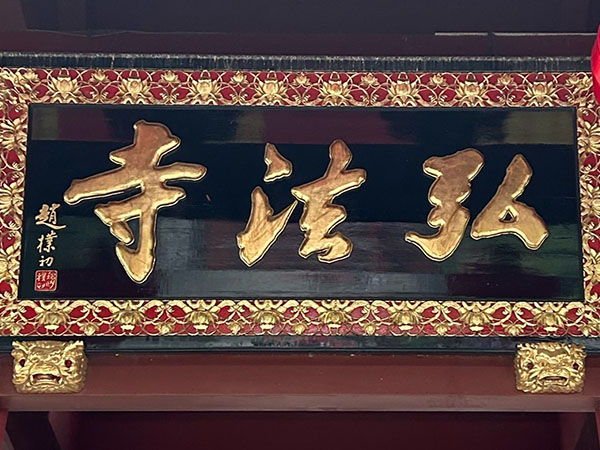 弘法寺
趙樸初